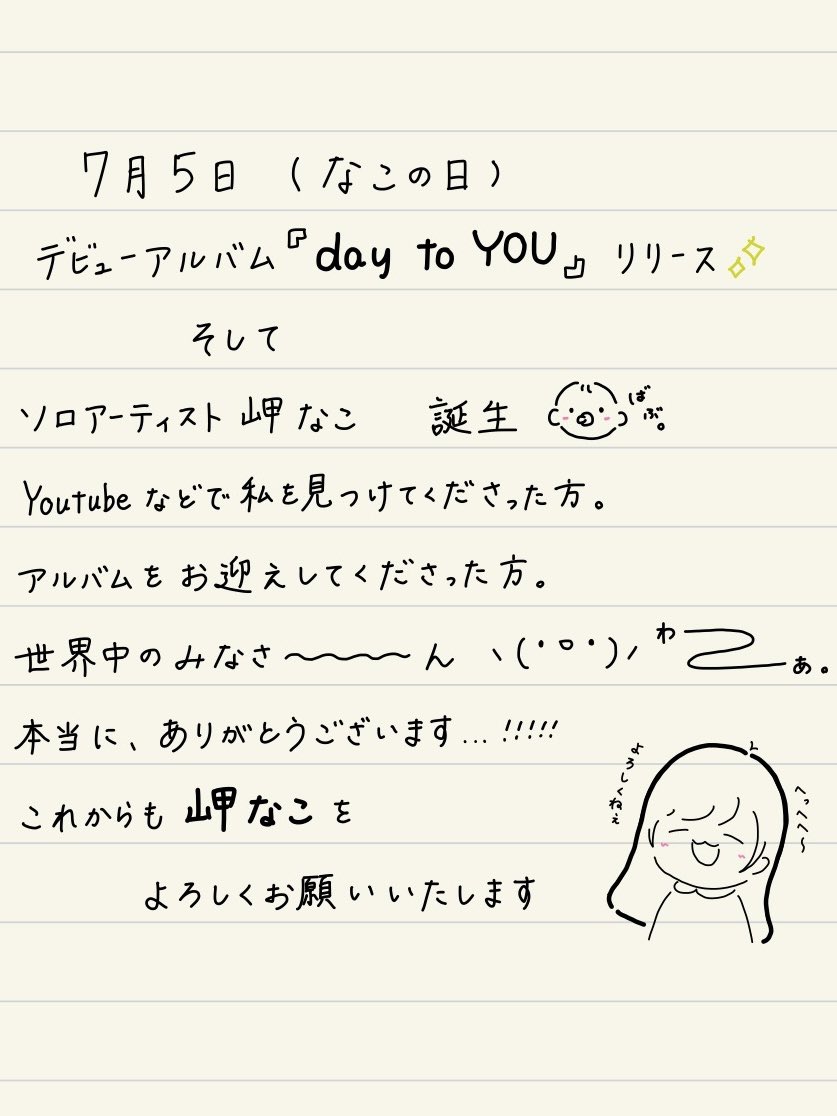 7月5日（なこの日）
デビューアルバム『day to YOU』リリース
そして
ソロアーティスト 岬 なこ 誕生 ばぶ。
Youtube などで私を見つけてくださった方。
アルバムをお迎えしてくださった方。
世界中のみなさ〜〜〜〜ん ヽ(・ᗜ・)ノ わ〜あ。
本当に、ありがとうございます...!!!!!
これからも 岬 なこ を
よろしくお願いいたします
よろしくねぇ
へっへへ〜